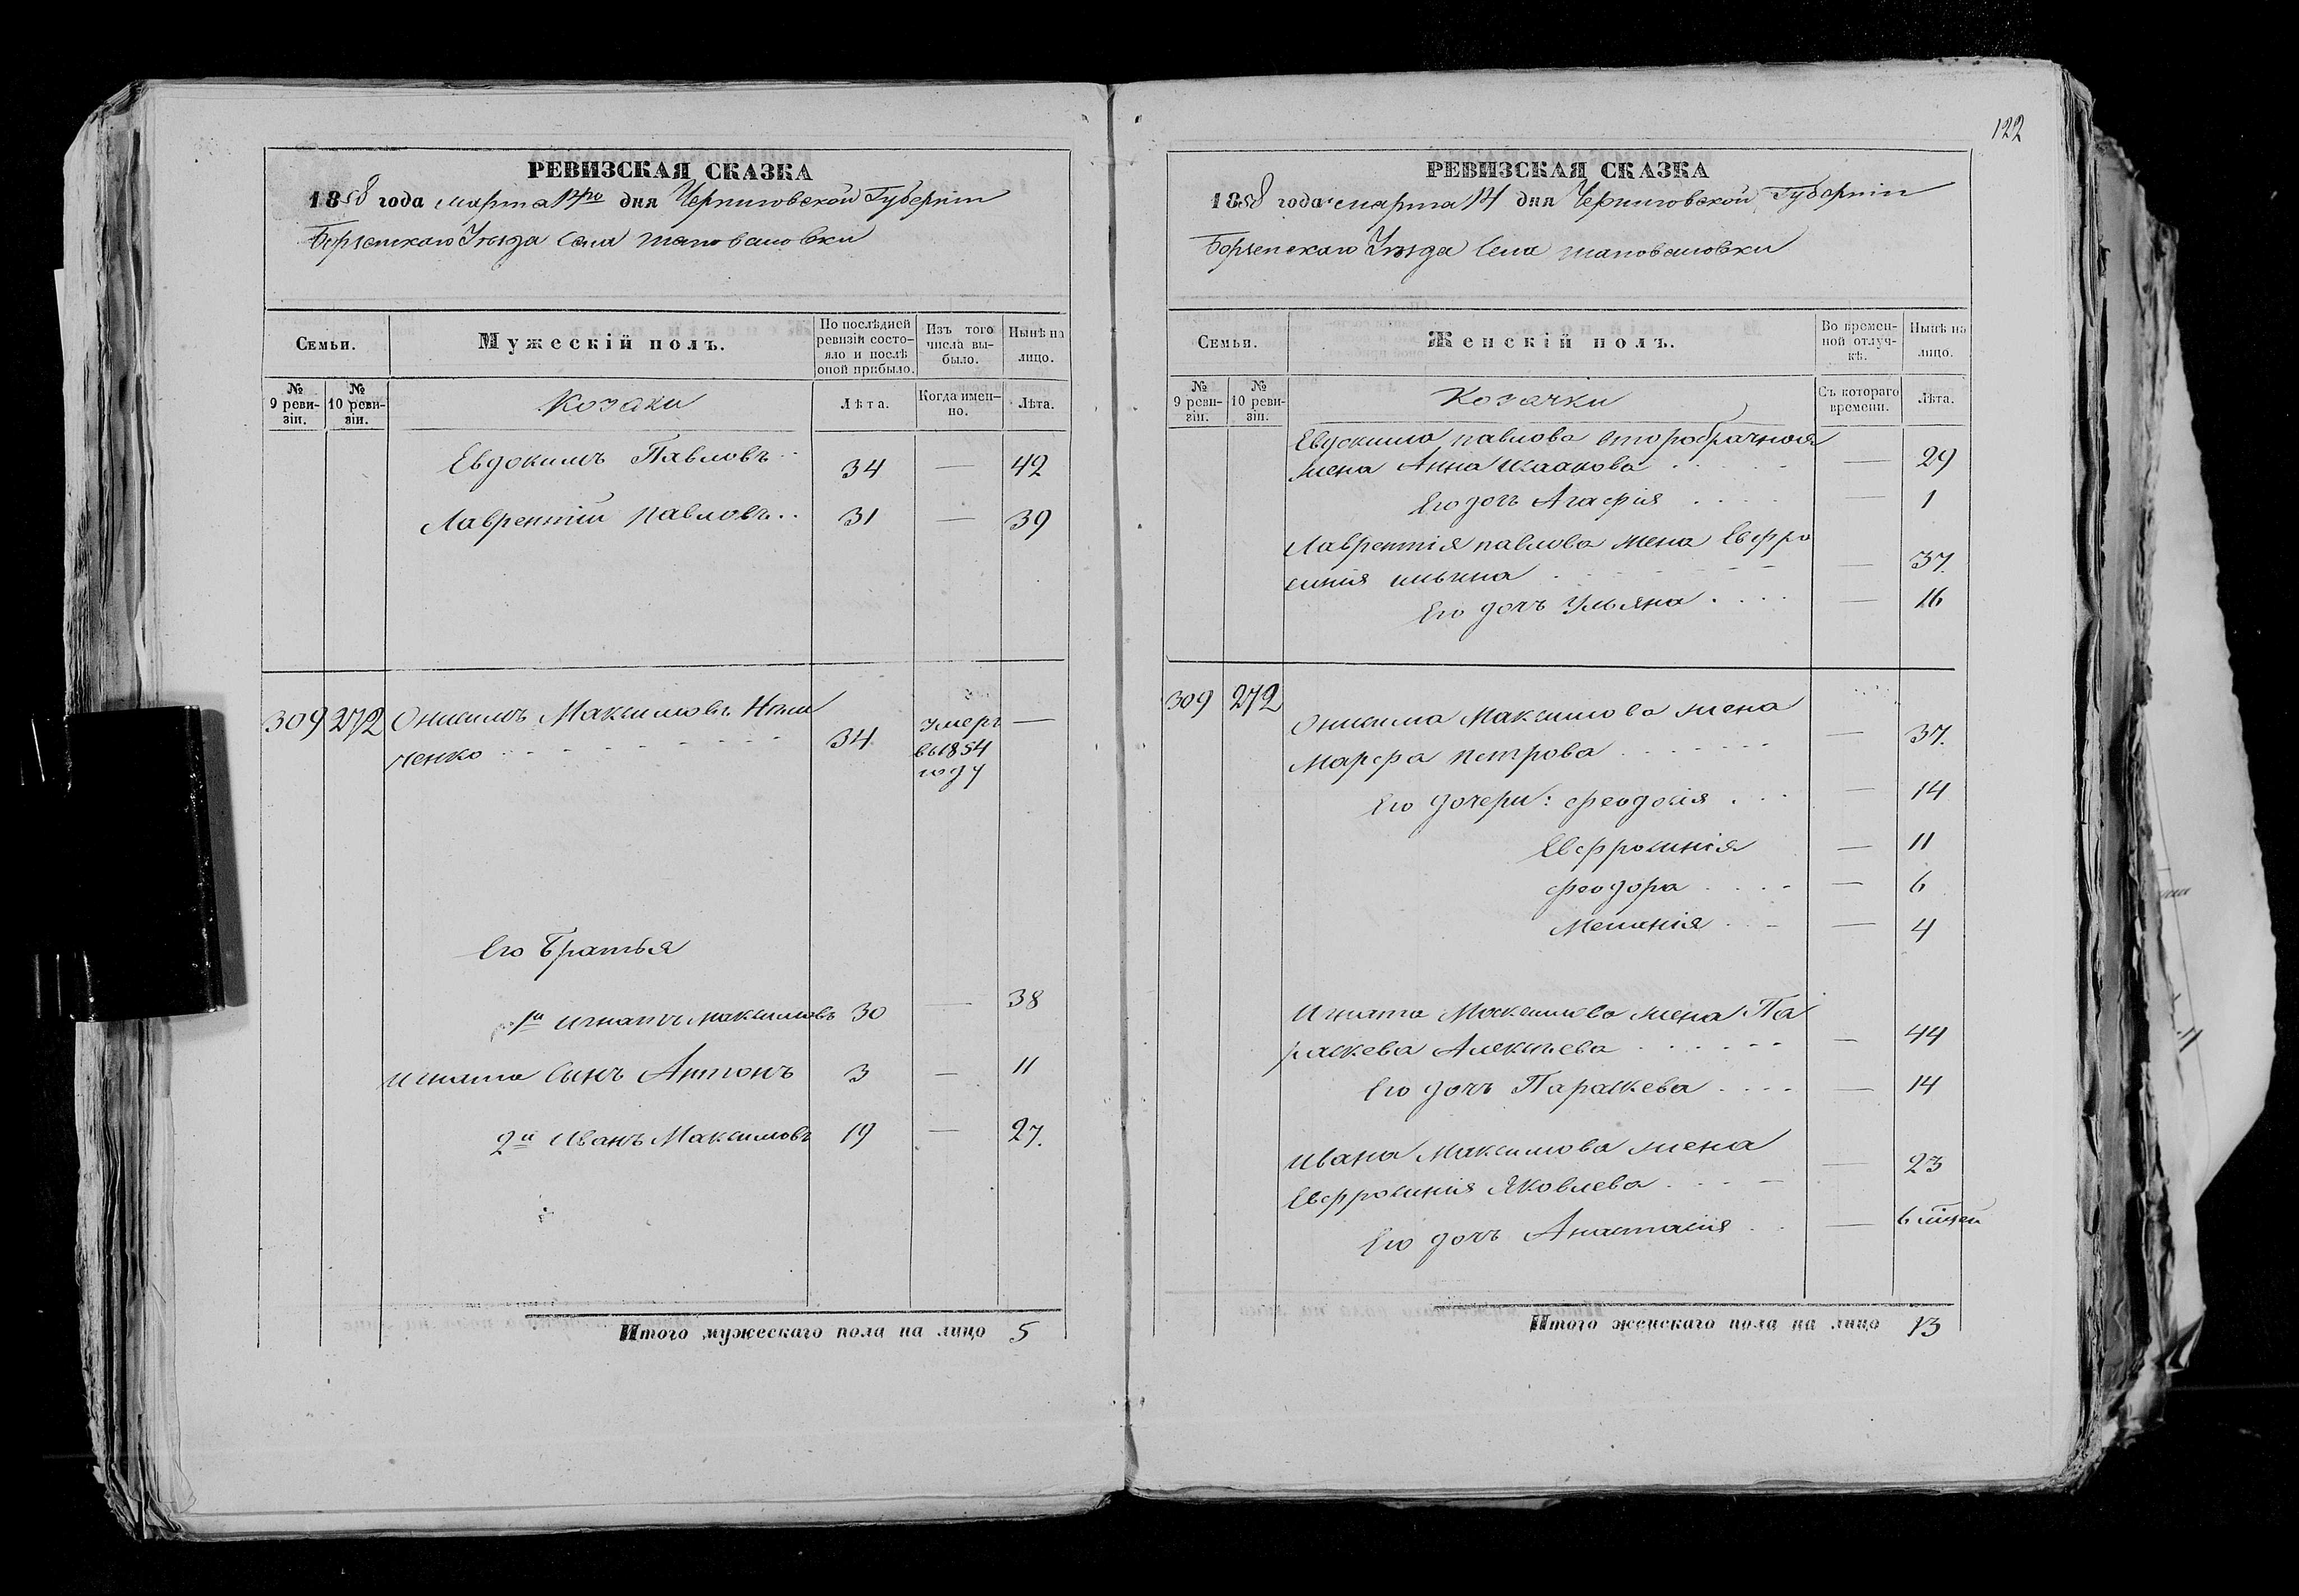 РЕВИЗСКАЯ СКАЗКА
1858 года марта 14го дня Черниговской Губерніи
Борзенскаго Уѣзда Села Шаповаловки
Семьи.
Мужескій полъ.
По послѣдней ревизіи состояло и послѣ оной прибыло.
Изъ того числа выбыло.
Нынѣ на лицо.
№ 9 ревизіи.
№ 10 ревизіи.
Козаки
Лѣта.
Когда именно.
Лѣта.
Евдокимъ Павловъ 34 — 42
Лаврентій павловъ 31 — 39
309 272 Онисимъ Максимовъ
ченко 34 умеръ въ 1854 году —
Его Братья
1й игнатъ максимовъ 30 — 38
игната Сынъ Антонъ 3 — 11
2й Иванъ Максимовъ 19 — 27.
Итого мужескаго пола на лицо 5
122
РЕВИЗСКАЯ СКАЗКА
1858 года марта 14 дня Черниговской Губерніи
Борзенскаго Уѣзда Села шаповаловки
Семьи.
Женскій полъ.
Во временной отлучкѣ.
Нынѣ на лицо.
№ 9 ревизіи.
№ 10 ревизіи.
Козачки
Съ котораго времени.
Лѣта.
Евдокима павлова второбрачная
жена Анна исаакова — 29
Его дочь Агафія — 1
Лаврентія павлова жена Евфро
синія ильина — 37.
Его дочь Ульяна — 16
309 272 Онисима Максимова жена
Марфа петрова — 37.
Его дочери: феодосія — 14
Евфросинія — 11
феодора — 6
Меланія — 4
Игната Максимова жена Па
раскева Алексѣева — 44
Его дочь Параскева — 14
Ивана Максимова жена
Евфросинія Яковлева — 23
Его дочь Анастасія — 6
Итого женскаго пола на лицо 13